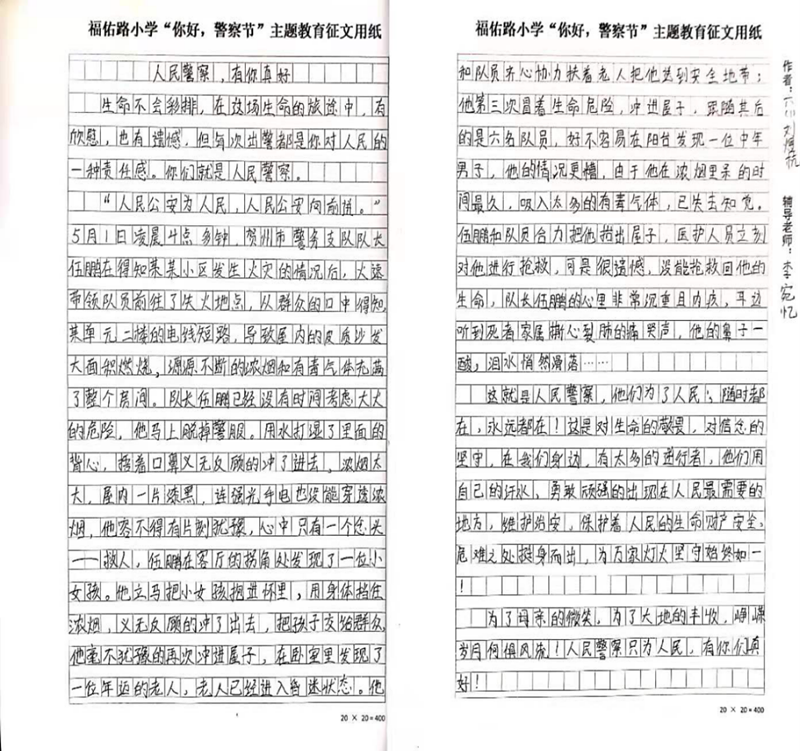 福佑路小学“你好，警察节”主题教育征文用纸
人民警察，有你真好
生命不会彩排，在这场生命的旅途中，有
欣慰，也有遗憾，但每次出警都是你对人民的
一种责任感。你们就是人民警察。
“人民公安为人民，人民公安向前进。”
5月1日凌晨4点多钟，贺州市警务支队队长
伍鹏在得知某某小区发生火灾的情况后，火速
带领队员前往了失火地点，从群众的口中得知，
某单元二楼的电线短路，导致屋内的皮质沙发
大面积燃烧，源源不断的浓烟和有毒气体充满
了整个房间。队长伍鹏已经没有时间考虑大火
的危险，他马上脱掉警服。用水打湿了里面的
背心，捂着口鼻义无反顾的冲了进去。浓烟太
大，屋内一片漆黑，连强光手电也没能穿透浓
烟，他容不得有片刻犹豫，心中只有一个念头
——救人，伍鹏在客厅的拐角处发现了一位小
女孩。他立马把小女孩抱进怀里，用身体挡住
浓烟，义无反顾的冲了出去，把孩子交给群众，
他毫不犹豫的再次冲进屋子，在卧室里发现了
一位年迈的老人，老人已经进入昏迷状态。他
20 × 20＝400
福佑路小学“你好，警察节”主题教育征文用纸
和队员齐心协力扶着老人把他送到安全地带；
他第三次冒着生命危险，冲进屋子，跟随其后
的是六名队员，好不容易在阳台发现一位中年
男子，他的情况更糟，由于他在浓烟里呆的时
间最久，吸入太多的有毒气体，已失去知觉。
伍鹏和队员合力把他抬出屋子，医护人员立刻
对他进行抢救，可是很遗憾，没能抢救回他的
生命，队长伍鹏的心里非常沉重且内疚，耳边
听到死者家属撕心裂肺的痛哭声，他的鼻子一
酸，泪水悄然滑落……
这就是人民警察，他们为了人民，随时都
在，永远都在！这是对生命的敬畏，对信念的
坚守，在我们身边，有太多的逆行者，他们用
自己的汗水，勇敢顽强的出现在人民最需要的
地方，维护治安，保护着人民的生命财产安全，
危难之处挺身而出，为万家灯火坚守始终如一
！
为了母亲的微笑，为了大地的丰收，峥嵘
岁月何惧风流！人民警察只为人民，有你们真
好！
20 × 20＝400
作者：六 刘
辅导老师：李宛忆